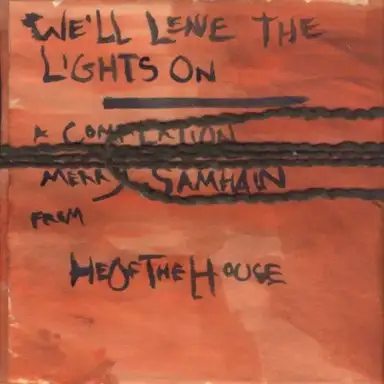 WE'LL LEAVE THE
LIGHTS ON
A COMPILATION
MERRY SAMHAIN
FROM
HEOFTHEHOUSE